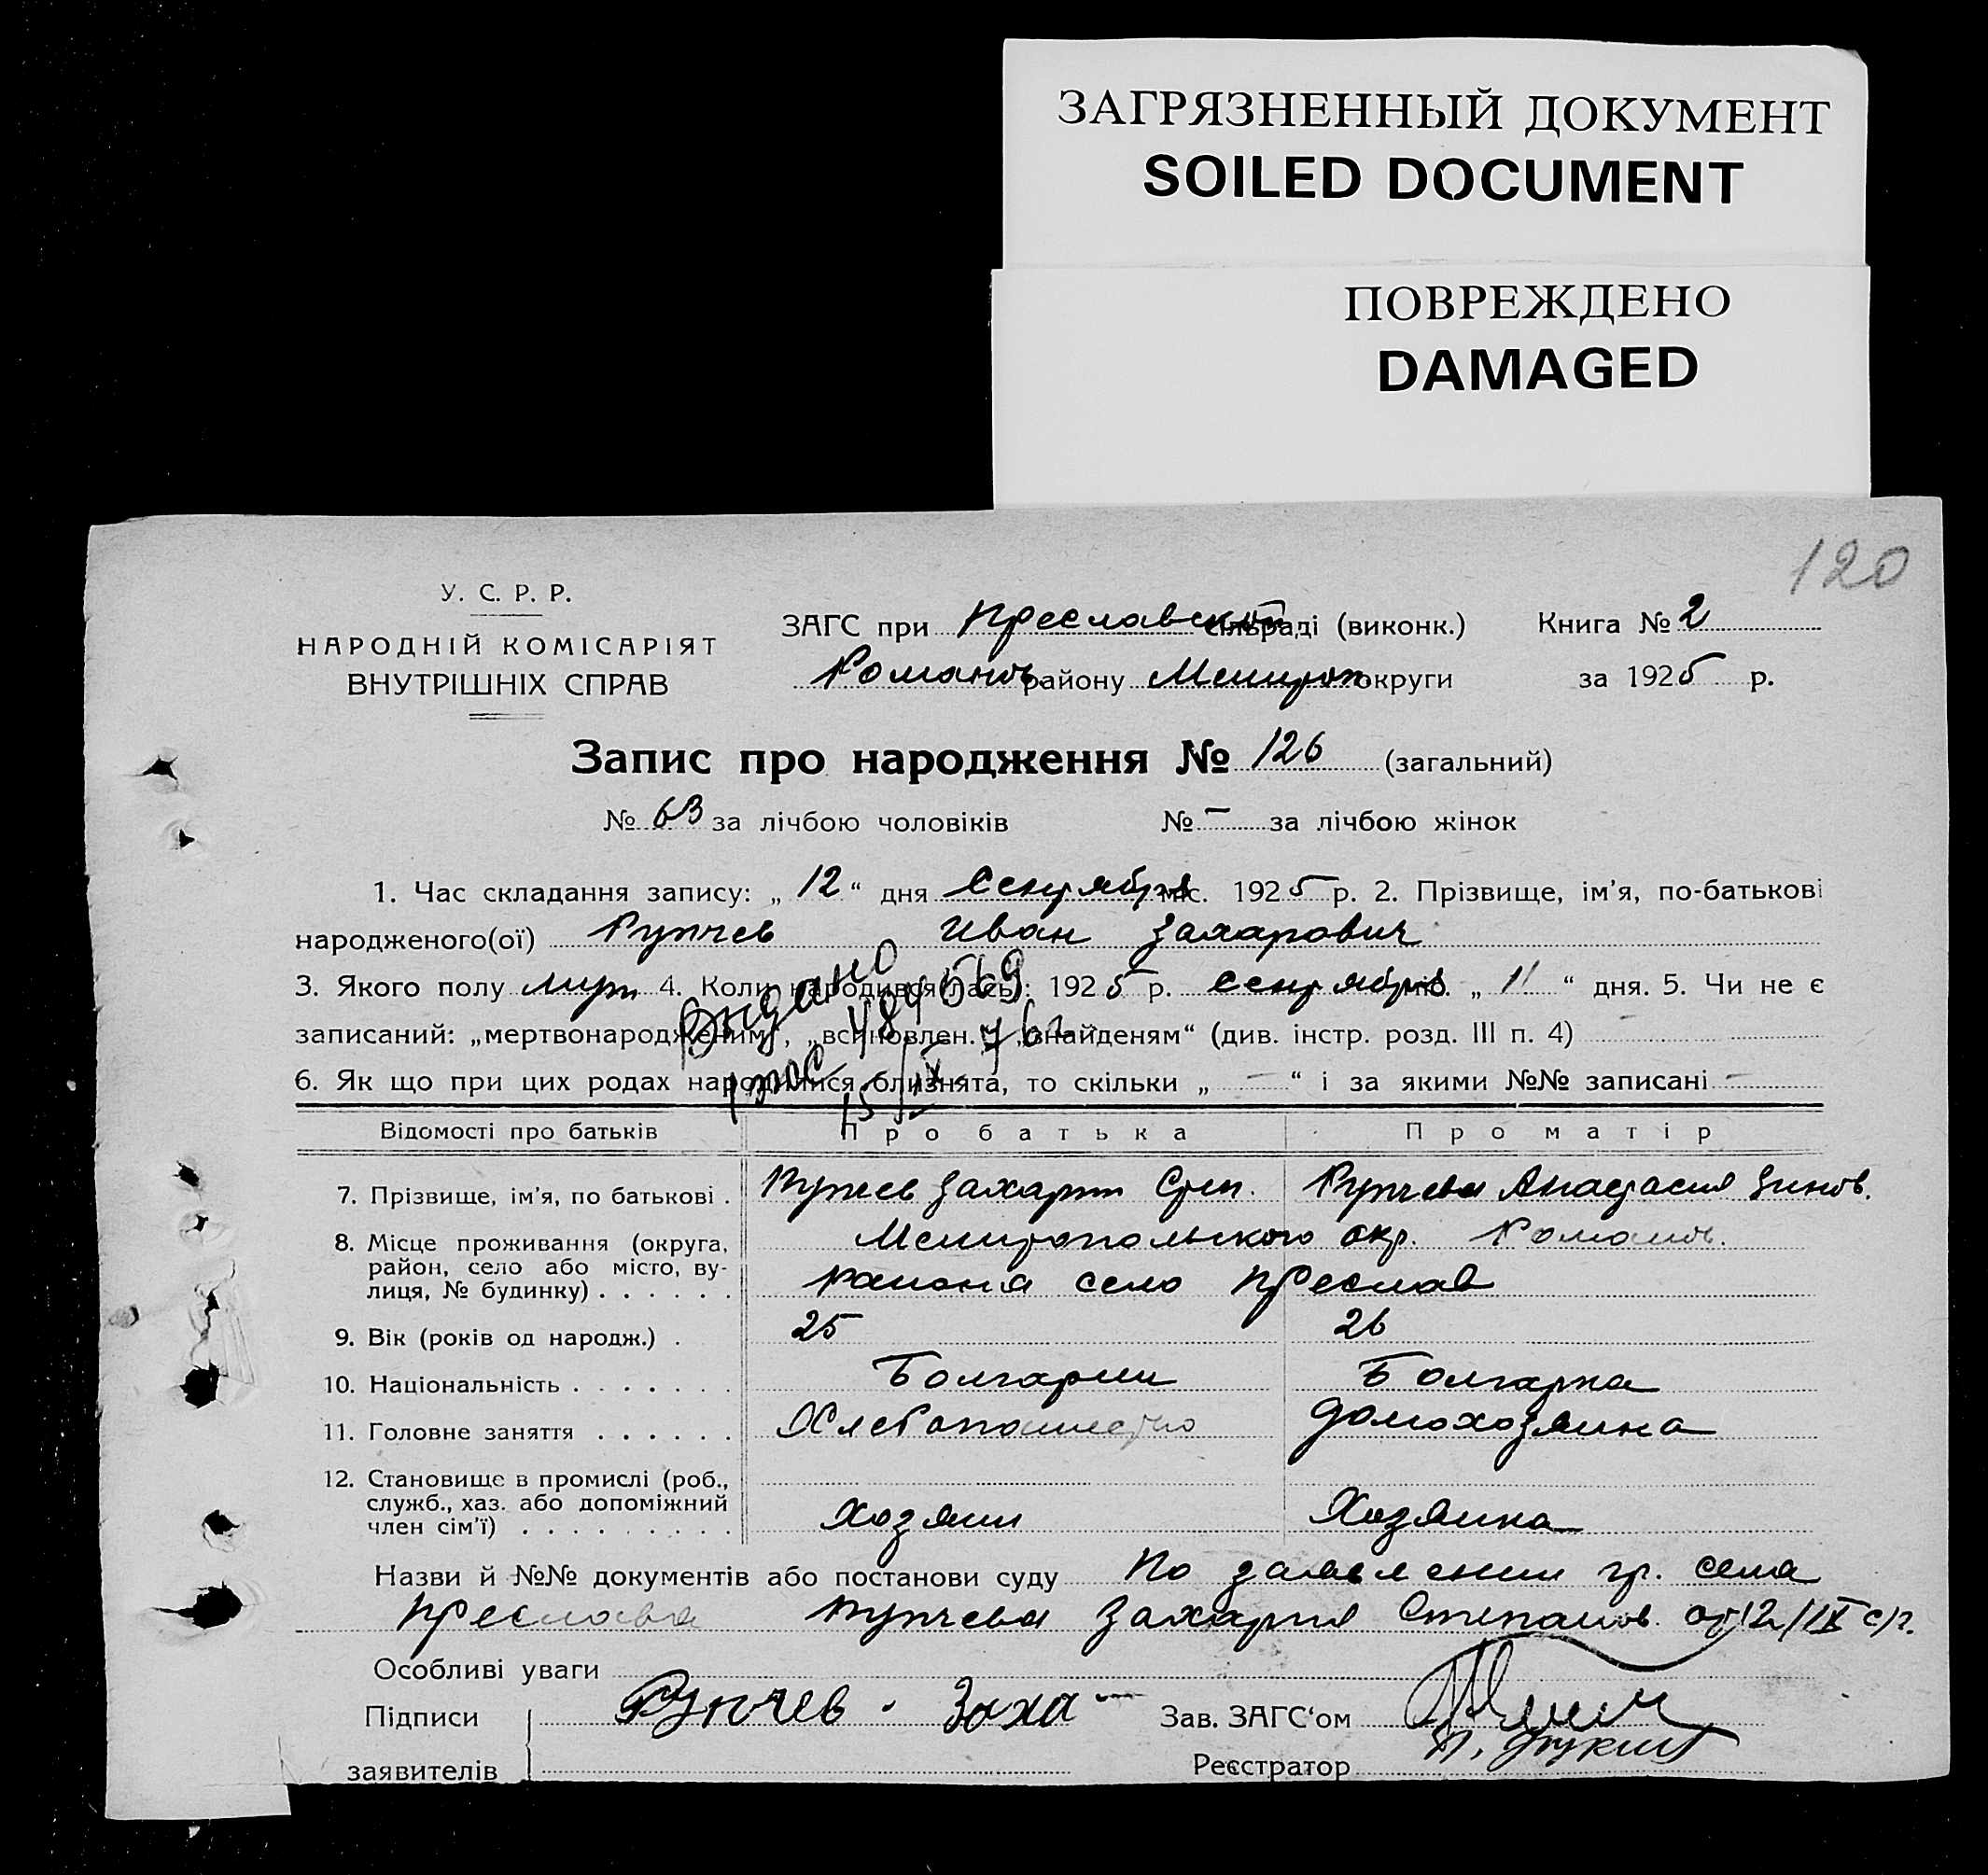 ЗАГРЯЗНЕННЫЙ ДОКУМЕНТ
SOILED DOCUMENT
ПОВРЕЖДЕНО
DAMAGED
120
У. С. Р. Р.
НАРОДНІЙ КОМІСАРІЯТ
ВНУТРІШНІХ СПРАВ
ЗАГС при Преславской сільраді (виконк.) Книга № 2
Романов. району Мелитоп округи за 1925 р.
Запис про народження № 126 (загальний)
№ 63 за лічбою чоловіків № – за лічбою жінок
1. Час складання запису: „ 12 “ дня Сентября міс. 1925 р. 2. Прізвище, ім'я, по-батькові
народженого(ої) Рупчев Иван Захарович
3. Якого полу муж 4. Коли народився(лась): 1925 р. Сентября міс. „ 11 “ дня. 5. Чи не є
записаний: „мертвонародженим“, „всиновлен.“, „знайденям“ (див. інстр. розд. III п. 4)
6. Як що при цих родах народилися близнята, то скільки „ – “ і за якими №№ записані –
Выдано
15/IX 76 г.
Відомості про батьків Про батька Про матір
7. Прізвище, ім'я, по батькові . Рупчев Захарий Степ. Рупчева Анастасия Зинов.
8. Місце проживання (округа, район, село або місто, ву- лиця, № будинку) . . . . . . Мелитопольского окр. Романов.
района село Преслав
9. Вік (років од народж.) . 25 26
10. Національність . . . . . . . Болгарин Болгарка
11. Головне заняття . . . . . . Хлебопашество домохозяйка
12. Становище в промислі (роб., служб., хаз. або допоміжний член сім'ї) . . . . . . . . . Хозяин Хозяйка
Назви й №№ документів або постанови суду По заявлении гр. села
Преслава Рупчева Захария Степанов. от 12/IX с/г.
Особливі уваги
Підписи Рупчев. Заха Зав. ЗАГС‘ом
заявителів Реєстратор